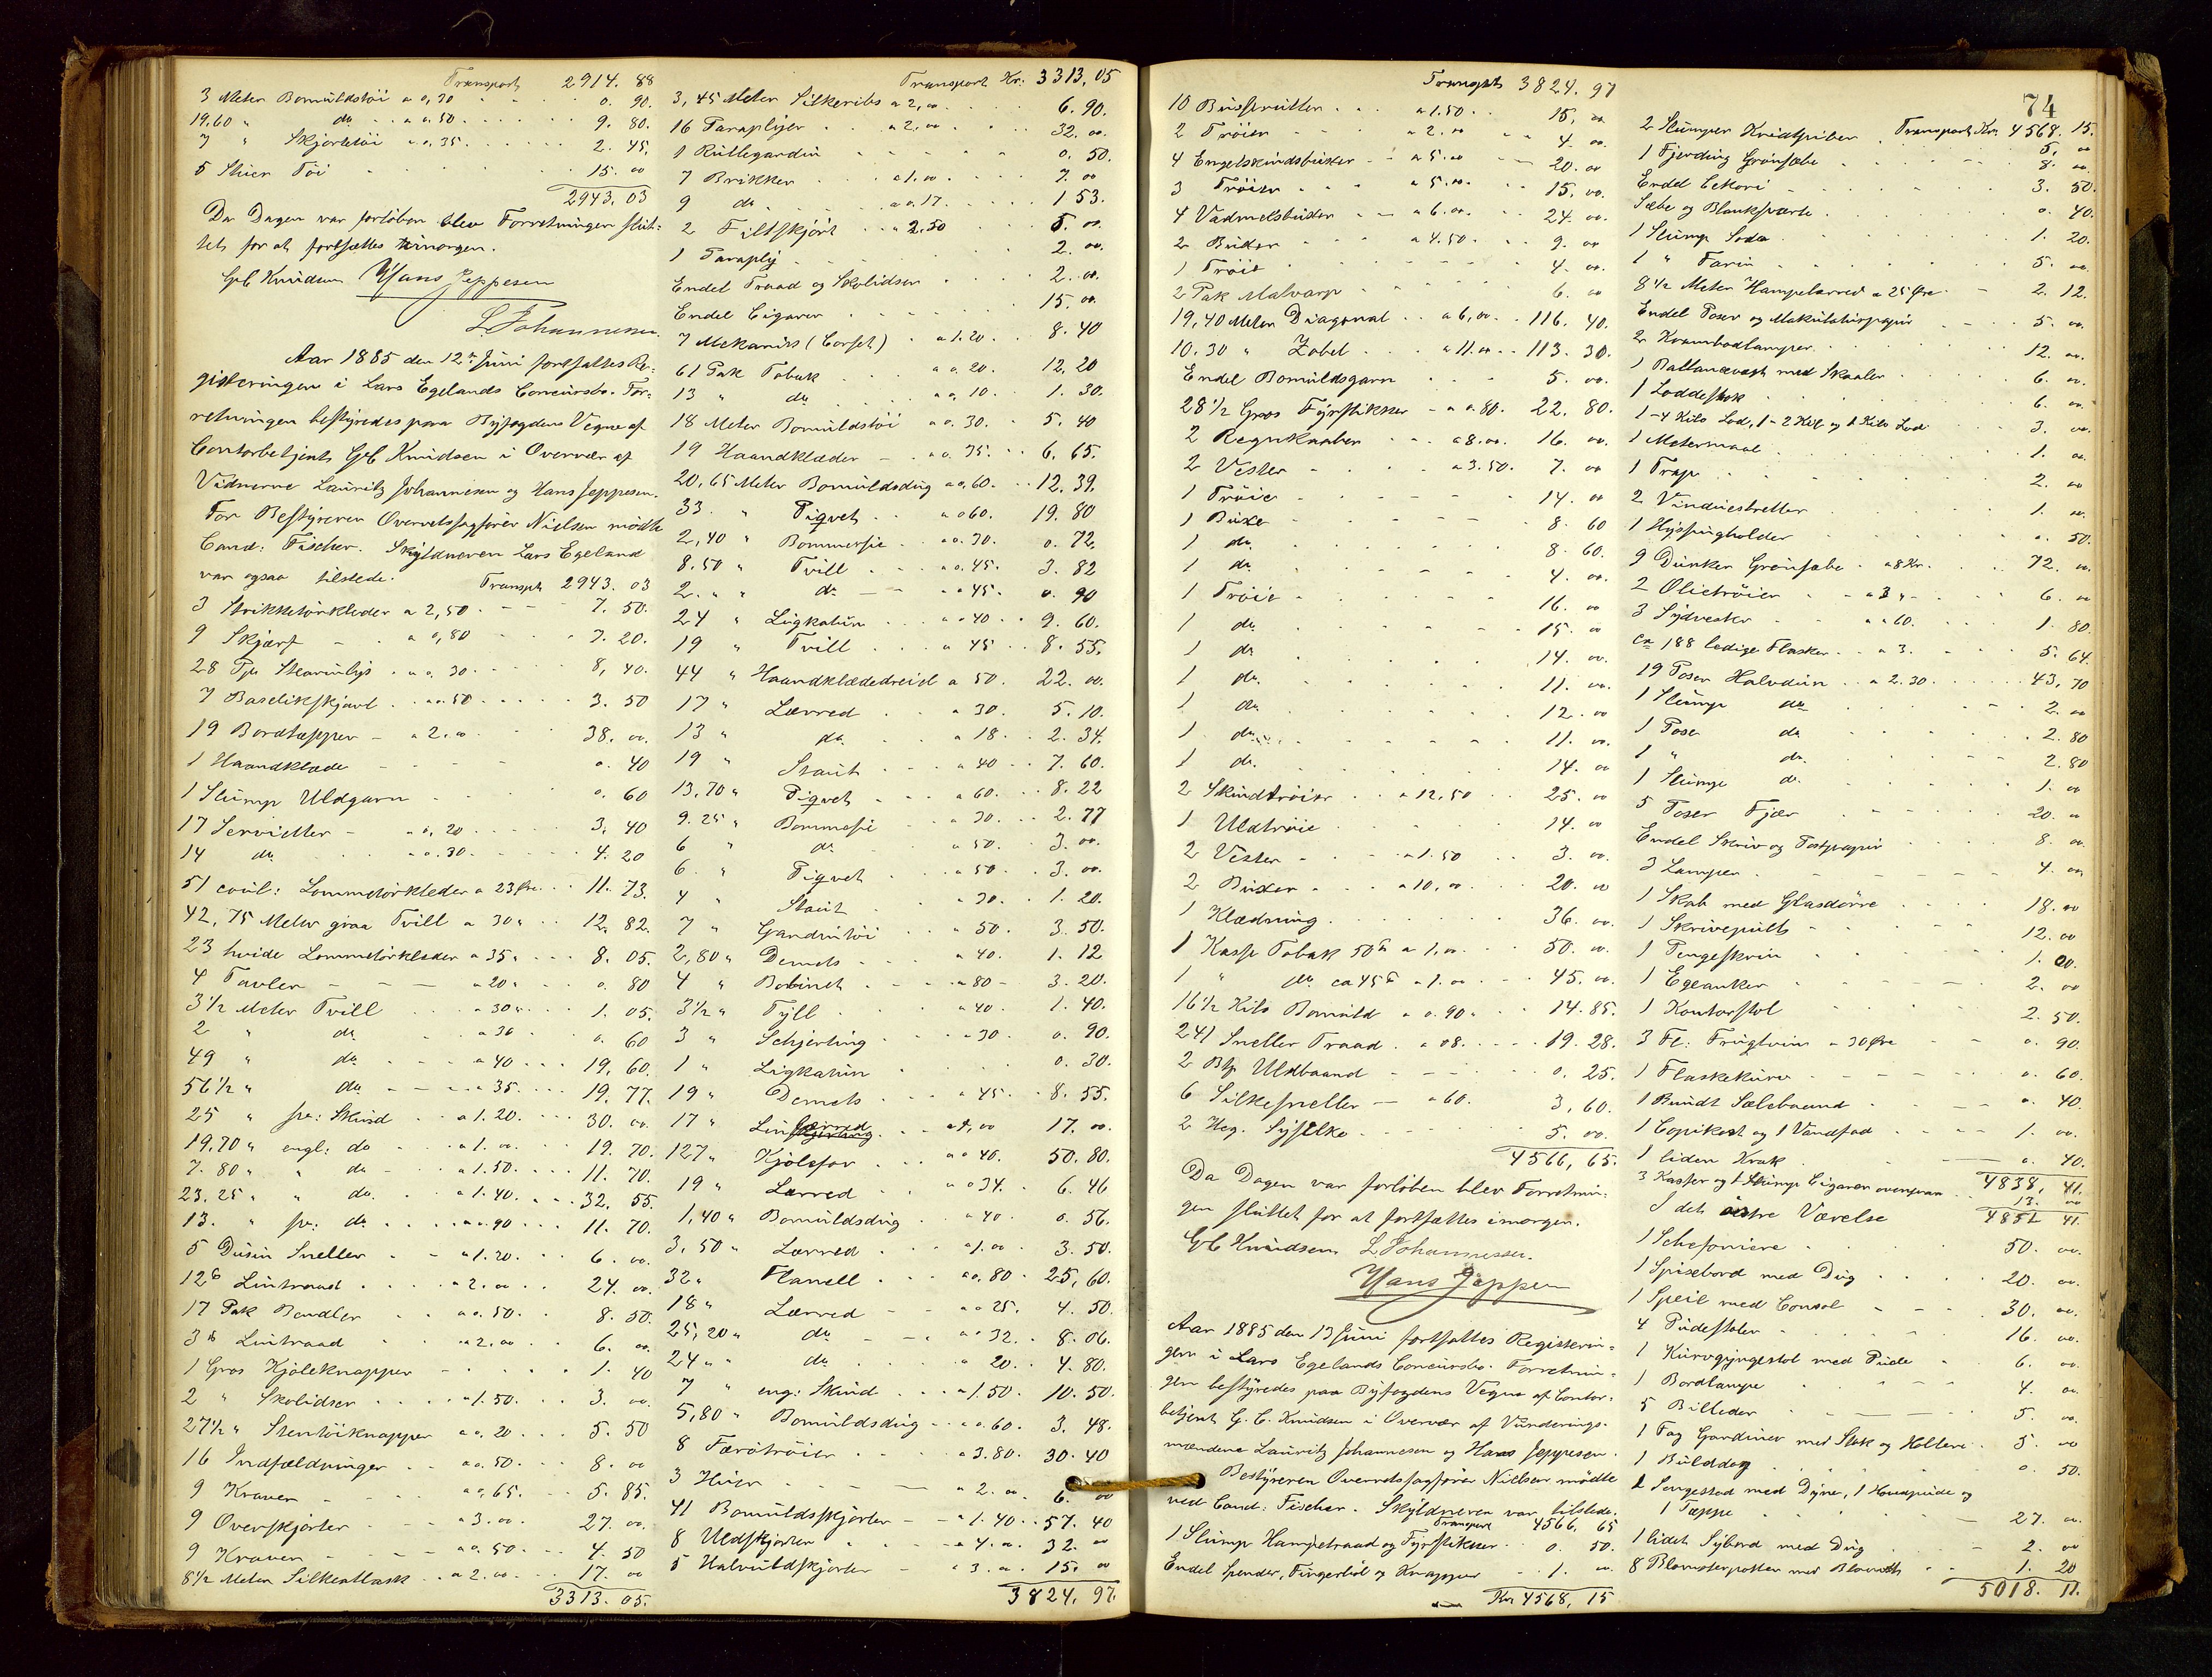 Transport 2914. 88
3 Meter Bomuldstöi a 0,30 0. 90.
19.60 " do a 0.50 9. 80.
7 " Skjortetöi a 0,35 2. 45.
5 Stuer Töi 15. 00
2943. 03
Da Dagen var forløben blev Forretningen slut-
tet for at fortsættes imorgen.
G C Knudsen Hans Jeppesen
L Johannesen
Aar 1885 den 12te Juni fortsattes Re-
gistreringen i Lars Egelands Concursbo. For-
retningen bestyredes paa Byfogdens Vegne af
Contorbetjent G C Knudsen i Overvær af
Vidnerne Lauritz Johannesen og Hans Jeppesen.
For Bestyreren Overretssagfører Nielsen mødte
Cand: Fischer. Skyldneren Lars Egeland
var ogsaa tilstede.
Transpt 2943. 03
3 Strikketörklæder a 2,50 7. 50.
9 Skjærf a 0,80 7. 20.
28 Pk Stearinlys a 0. 30 8, 40.
7 Baselikskjørt a 0.50 3. 50
19 Bordtæpper a 2.00 38. 00.
1 Haandklæde 0. 40
1 Slump Uldgarn 0. 60
17 Servietter a 0,20 3. 40
14 do a 0.30 4. 20
51 coul: Lommetörklæder a 23 Øre 11. 73.
42,75 Meter graa Tvill a 30 " 12. 82.
23 hvide Lommetörklæder a 35 " 8. 05.
4 Tavler a 20 " 0. 80
3 1/2 Meter Tvill a 30 " 1. 05.
2 " do a 30 0. 60
49 " do a 40 19, 60.
56 1/2 " do a 35 19. 77.
25 " fr: Skind a 1.20 30. 00.
19,70 " engl: do a 1.00 19. 70.
7.80 " " do a 1.50 11. 70.
23.25 " " do a 1.40 32. 55.
13. " fr: do a 0.90 11. 70.
5 Dusin Sneller a 1.20 6. 00.
12 lb Lintraad a 2.00 24. 00.
17 Pak Bendler a 0.50 8. 50.
3 lb Lintraad a 2.00 6. 00.
1 Gros Kjoleknapper 1. 40
2 " Skolidser a 1.50 3. 00.
27 1/2 " Stentöiknapper a 0.20 5. 50
16 Indfældninger a 0.50 8. 00
9 Kraver a 0,65 5. 85.
9 Overskjorter a 3.00 27. 00.
9 Kraver a 0.50 4. 50
8 1/2 Meter Silkeatlask a 2.00 17. 00
3313. 05.
Transport Kr. 3313, 05
3,45 Meter Silkeribs a 2,00 6. 90.
16 Paraplyer a 2,00 32. 00.
1 Rullegardin 0. 50.
7 Brikker a 1.00 7. 00
9 do a 0.17 1 53.
2 Filtskjört a 2.50 5. 00.
1 Paraply 2. 00.
Endel Traad og Skolidser 2. 00.
Endel Cigarer 15. 00.
7 Mekaniks (Corset) a 1.20 8. 40
61 Pak Tobak a 0. 20. 12, 20
13 " do a 0, 10 1. 30.
18 Meter Bomuldstöi a 0.30. 5. 40
19 Haandklæder a 0. 35. 6. 65.
20,65 Meter Bomuldsdug a 0,60 12. 39.
33. " Piqvet a 0 60. 19. 80
2,40 " Bommersie a 0. 30. 0. 72.
8.50 " Tvill a 0.45. 3. 82
2. " " do a 45. 0. 90
24 " Ligkatun a 40 9. 60.
19 " Tvill a 45 8. 55.
44 " Haandklædedreiel a 50. 22. 00.
17 " Lærred a 30. 5. 10.
13 " do. a 18 2. 34.
19 " Stout a 40 7. 60.
13,70 " Piqvet a 60. 8. 22
9.25 " Bommesie a 30. 2. 77
6 " do a 50. 3. 00.
6. " Piqvet a 50. 3. 00.
4 " Stout a 30. 1. 20.
7 " Gardintöi a 50. 3. 50.
2,80 " Demets a 40. 1. 12
4 " Bobinet a 80 3. 20.
3 1/2 " Tyll a 40 1. 40.
3 " Schjerting a 30 0. 90.
1 " Ligkatun 0. 30.
19 " Demets a 45 8. 55.
17 " Linlærred a 1,00 17. 00.
127 " Kjolefor a 0 40. 50. 80.
19 " Lærred a 0 34. 6. 46
1,40 " Bomuldsdug a 40 0. 56.
3,50 " Lærred a 1.00 3. 50.
32 " Flanell a 0.80 25, 60.
18 " Lærred a 0 25. 4. 50.
25,20 " do a 0 32. 8. 06.
24 " " do a 20. 4. 80.
7 " eng: Skind a 1.50 10. 50.
5,80 " Bomuldsdug a 0.60. 3. 48.
8 Færötröier a 3.80. 30. 40
3 Huer a 2. 00 6. 00
41 Bomuldsskjorter a 1.40 57. 40
8 Uldskjorter a 4.00 32. 00
5 Halvuldskjorter a 3.00 15. 00
3824. 97.
Transpt 3824. 97
10 Busserutter a 1.50. 15. 00
2 Tröier a 2. 00 4. 00.
4 Engelskindsbuxer a 5.00 20. 00
3 Tröier a 5.00. 15. 00.
4 Vadmelsbuxer a 6.00. 24. 00.
2 Buxer a 4.50. 9. 00
1 Tröie 4. 00.
2 Pak Malvarp 6. 00
19,40 Meter Diagonal a 6,00. 116. 40.
10.30 " Zobel a 11.00 113. 30.
Endel Bomuldsgarn 5. 00.
28 1/2 Gros Fyrstikker a 0.80. 22. 80.
2 Regnkaaber a 8.00. 16. 00.
2 Vester a 3.50. 7. 00
1 Tröie 14. 00
1 Buxe 8. 60
1 do. 8. 60.
1 do. 4. 00.
1 Tröie 16. 00
1 do. 15. 00
1 do. 14. 00.
1 do. 11. 00.
1 do. 12. 00
1 do. 11. 00.
1 do. 14. 00
2 Skindtröier a 12,50 25. 00
1 Uldtröie 14. 00
2 Vester a 1.50 3. 00.
2 Buxer a 10,00 20. 00
1 Klædning 36. 00.
1 Kasse Tobak 50 lb a 1,00 50. 00.
1 " do. ca 45 lb a 1.00 45. 00.
16 1/2 Kilo Bomuld a 0.90 " 14. 85.
241 Sneller Traad a 08. 19. 28.
2 Bt Uldbaand 0. 25.
6 Silkesneller a 60. 3, 60.
2 Heg. Sysilke 5. 00.
4566, 65.
Da Dagen var forløben blev Forretnin-
gen sluttet for at fortsættes imorgen.
G C Knudsen L Johannessen.
Hans Jeppesen
Aar 1885 den 13 Juni fortsattes Registerin-
gen i Lars Egelands Concursbo. Forretnin-
gen bestyredes paa Byfogdens Vegne af Contor-
betjent G. C. Knudsen i Overvær af Vurderings-
mændene Lauritz Johannesen og Hans Jeppesen.
Bestyreren Overretssagfører Nielsen mødte
ved Cand: Fischer. Skyldneren var tilstede.
Transport 4566. 65
1 Slump Hampetraad og Fyrstikker 0. 50.
Endel Spender, Fingerböl og Knapper 1. 00.
Kr 4568, 15
74
Transport Kr. 4568. 15.
2 Slumper Kridtpiber 5. 00
1 Fjerding Grönsæbe 8. 00
Endel Cekori 3. 50.
Sæbe og Blanksværte 0. 40.
1 Slump Soda 1. 20.
1 " Farin 5. 00.
8 1/2 Meter Hampelærred a 25 Øre 2. 12.
Endel Poser og Makulaturpapir 5. 00.
2 Krambodlamper 12. 00.
1 Ballancevegt med Skaaler 6. 00.
1 Loddestok 6. 00.
1-4 Kilo Lod, 1-2 Kilo og 1 Kilo Lod 3. 00.
1 Metermaal 1. 00.
1 Trap 2. 00
2 Vinduestretter 1. 00.
1 Hyssingholder 0. 50.
9 Dunker Grönsæbe a 8 Kr. 72. 00.
2 Olietröier a 3 " 6. 00
3 Sydvester a 0 60. 1. 80.
ca 188 ledige Flasker a 3. 5. 64.
19 Poser Halvdun a 2.30 43, 70
1 Slump do 2. 00
1 Pose do 2. 80
1 " do. 2. 80
1 Slump do. 1. 00
5 Poser Fjær 20. 00
Endel Skriv og Postpapir 8. 00.
3 Lamper 4. 00
1 Skab med Glasdörre 18. 00
1 Skrivepult 12. 00
1 Pengeskrin 1. 00.
1 Egeanker 2. 00
1 Kontorstol 2. 50.
3 Fl: Frugtvin a 30 Øre 0. 90.
1 Flaskekurv 0. 60.
1 Bundt Sælebaand 0. 40.
1 Copikost og 1 Vandfad 1. 00.
1 liden Krak 0. 40.
4838, 41.
3 Kasser og 1 Slump Cigarer ovenpaa 13. 00
4851 41.
I det østre Værelse
1 Schefoniere 50. 00.
1 Spisebord med Dug 20. 00.
1 Speil med Consol 30. 00.
4 Pudestoler 16. 00.
1 Kurvgyngestol med Pude 6. 00.
1 Bordlampe 4. 00.
5 Billeder 5. 00.
1 Fag Gardiner med Stok og Holdere 5. 00
1 Bulddog 0. 50.
1 Sengestad med Dyne, 1 Hovedpude og
1 Tæppe 27. 00.
1 lidet Sybord med Dug 2. 00
8 Blomsterpotter med Blomster 1. 20
5018. 11.